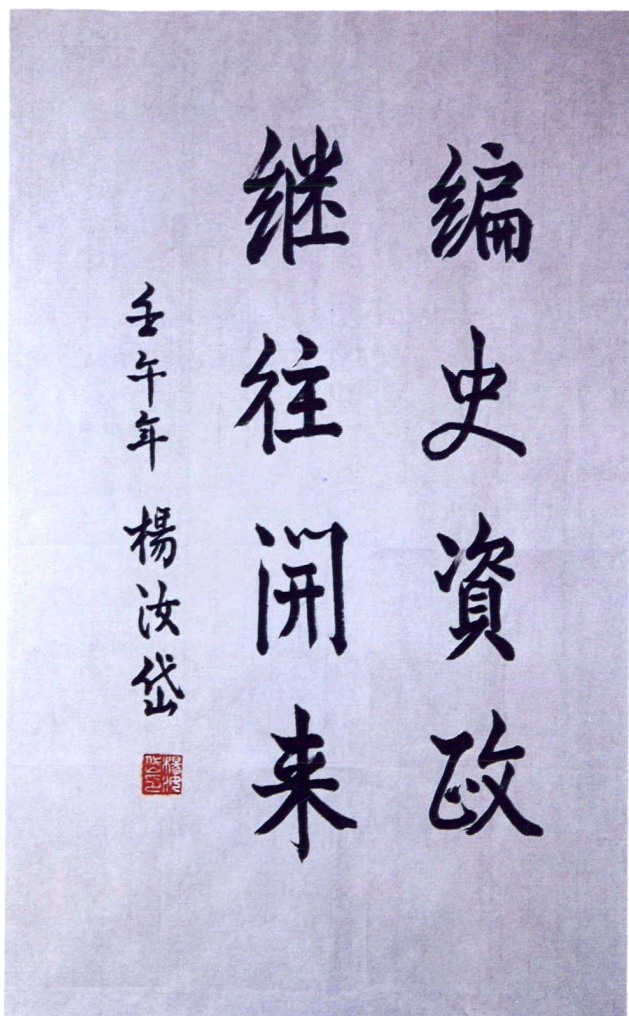 编史資政
继往開来
壬午年 楊汝岱
楊汝岱